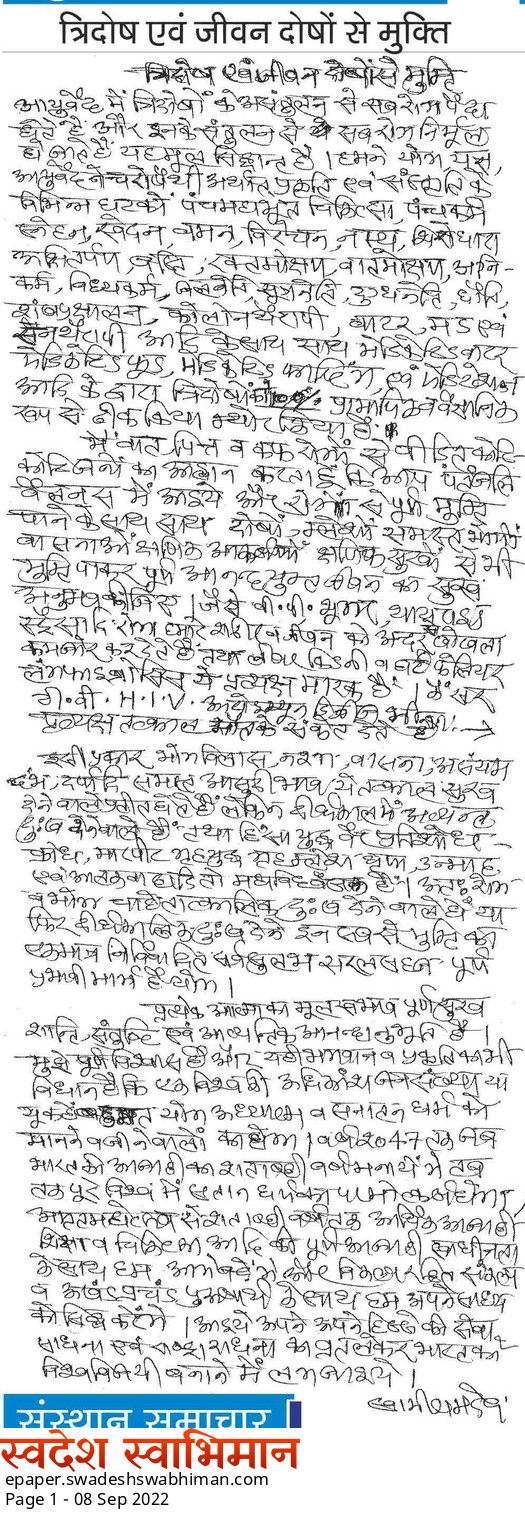 त्रिदोष एवं जीवन दोषों से मुक्ति
त्रिदोष एवं जीवन दोषों से मुक्ति
आयुर्वेद में त्रिदोषों के असंतुलन से सब रोग पैदा
होते हैं और इनके संतुलन से ये सब रोग निर्मूल
हो जाते हैं यह मूल सिद्धान्त है। हमने योग,
आयुर्वेद नेचरोपैथी अर्थात् प्रकृति एवं संस्कृति के
विभिन्न घटकों पंचमहाभूत चिकित्सा, पंचकर्म
स्नेहन, स्वेदन, वमन, विरेचन, नस्य, शिरोधारा
अक्षितर्पण, बस्ति, रक्तमोक्षण, वातमोक्षण, अग्नि-
कर्म, विध्यकर्म, जलनेति, सूत्रनेति, दुग्धनेति, धौति,
शंखप्रक्षालन, कोलोनथैरापी, वाटर, मड एवं
सनथैरापी आदि के साथ साथ मेडिकेटिड वाटर
मेडिकेटिड फूड, मेडिकेटिड फास्टिंग, एवं मेडिटेशन
आदि के द्वारा त्रिदोषों को 100% प्रामाणिक व वैज्ञानिक
रूप से ठीक किया है।
मैं वात पित्त व कफ रोगों से पीड़ित कोटि-
कोटि जनों का आह्वान करता हूँ कि आप पतंजलि
वैलनेस में आइये और रोगों से पूर्ण मुक्ति
पाने के साथ साथ दोषों समस्त भोगों
वासनाओं क्षणिक क्षणिक सुखों से भी
मुक्ति पाकर पूर्ण आनन्दयुक्त जीवन का सुखद
अनुभव कीजिए। जैसे बी.पी. शूगर, थायराइड
रोग हमारे शरीर व जीवन को अन्दर से खोखला
कमजोर कर देते हैं तथा लीवर किडनी व हार्ट फेलियर
प्रत्यक्ष मारक है। कैंसर
टी.बी. H.I.V. भी
प्रत्यक्ष तत्काल संकेत देते हैं।
इसी प्रकार भोग विलास, नशा, वासना, असंयम
दंभ, दर्पादि समस्त आसुरी भाव ये तत्काल सुख
देने वाले प्रतीत होते हैं लेकिन दीर्घकाल में अत्यन्त
दुःख देने वाले हैं तथा हिंसा युद्ध वैर प्रतिशोध
क्रोध, मारपीट गृहयुद्ध घृणा, उन्माद
एवं आतंकवादादि तो महाविध्वंसक हैं। अतः रोग
व भोग चाहे तात्कालिक दुःख देने वाले हों या
फिर दीर्घकालिक दुःख देने इन सब से मुक्ति का
एकमात्र निर्विवादित सर्वसुलभ सरल सहज पूर्ण
प्रभावी मार्ग है योग।
प्रत्येक आत्मा का मूल स्वभाव पूर्ण सुख
शान्ति, संतुष्टि एवं आत्यन्तिक आनन्दानुभूति है।
मुझे पूर्ण विश्वास है और यही भगवान व प्रकृति का भी
विधान है कि एक विश्व की अधिकांश जनसंख्या या
बहुमत योग अध्यात्म व सनातन धर्म को
मानने व जीने वालों का होगा। वर्ष 2047 तक जब
भारत की आजादी का शताब्दी वर्ष मनायेंगे तब
तक पूरे विश्व में
अमृतमहोत्सव से शताब्दी वर्ष तक आर्थिक आजादी
शिक्षा व चिकित्सा आदि की पूर्ण आजादी स्वाधीनता
के साथ हम आगे बढ़ेंगे और विकल्प रहित संकल्प
व अखंड प्रचंड पुरुषार्थ के साथ हम अपने साध्य
को सिद्ध करेंगे। आइये अपने अपने हिस्से की सेवा,
साधना एवं राष्ट्राराधना का व्रत लेकर भारत को
विश्वविजयी बनाने में लग जाइये।
स्वामी रामदेव
संस्थान समाचार
स्वदेश स्वाभिमान
epaper.swadeshswabhiman.com
Page 1 - 08 Sep 2022